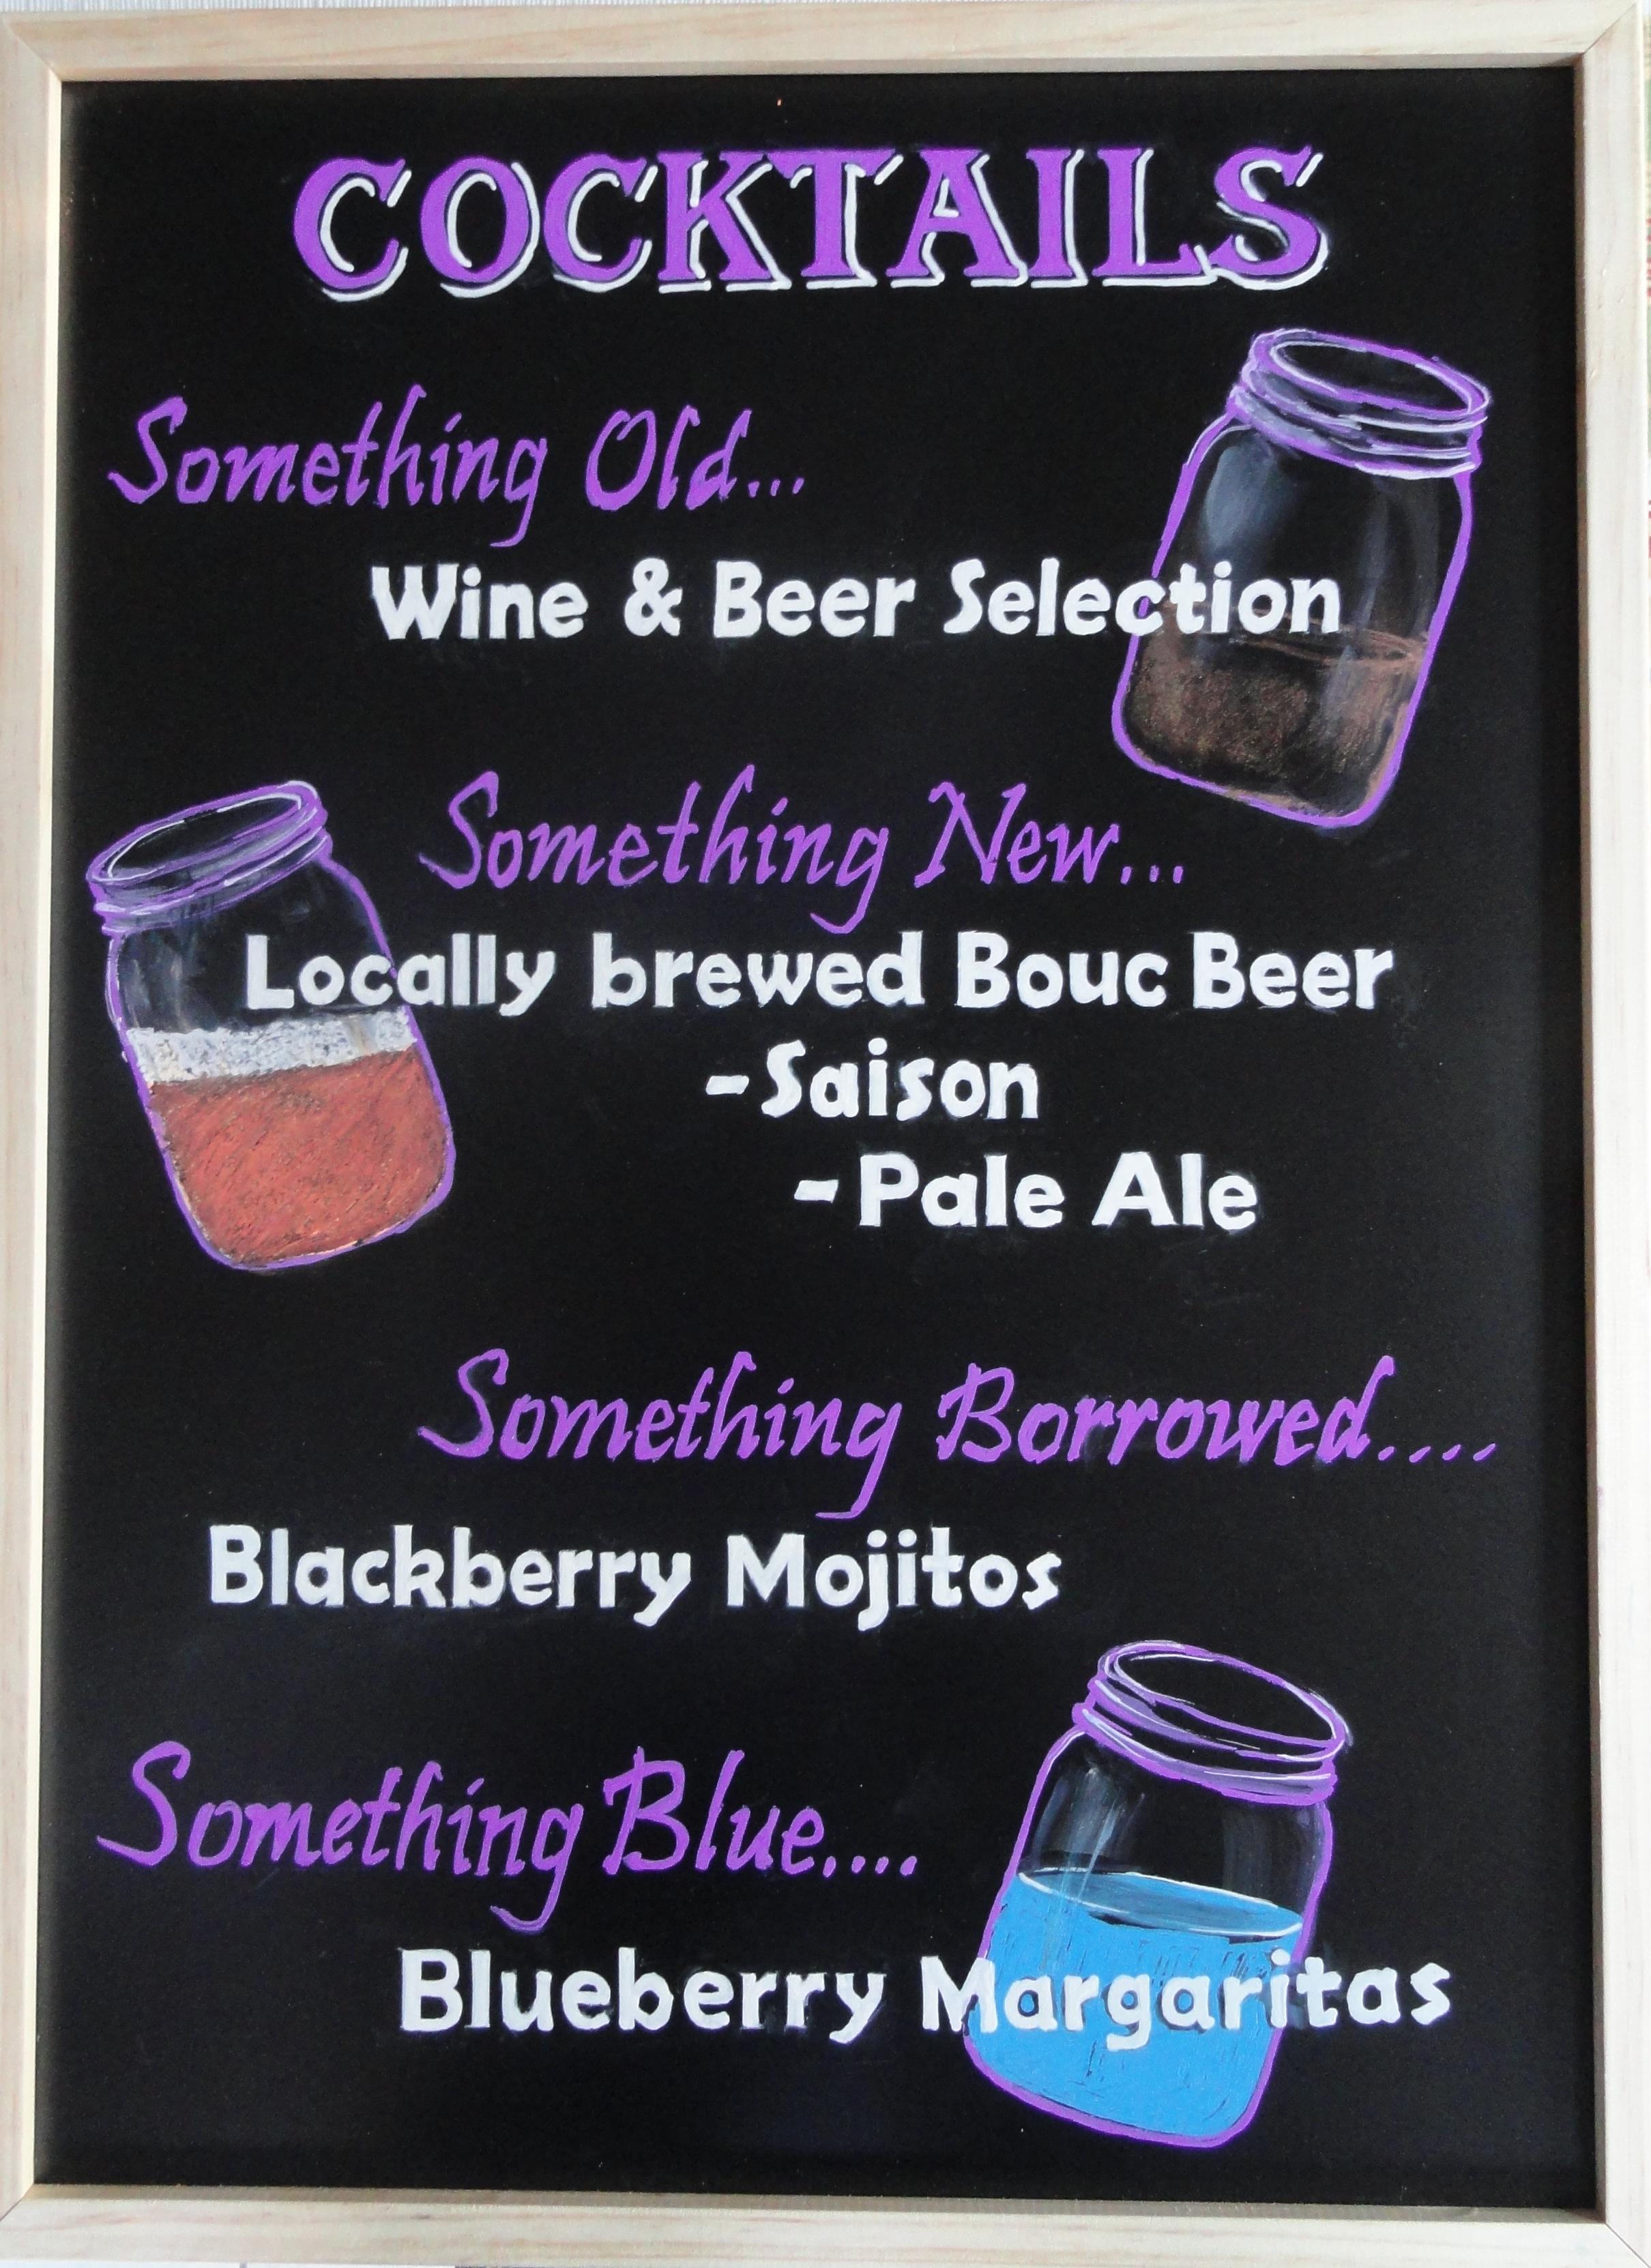 COCKTAILS
Something Old...
Wine & Beer Selection
Something New...
Locally brewed Bouc Beer
-Saison
-Pale Ale
Something Borrowed....
Blackberry Mojitos
Something Blue....
Blueberry Margaritas